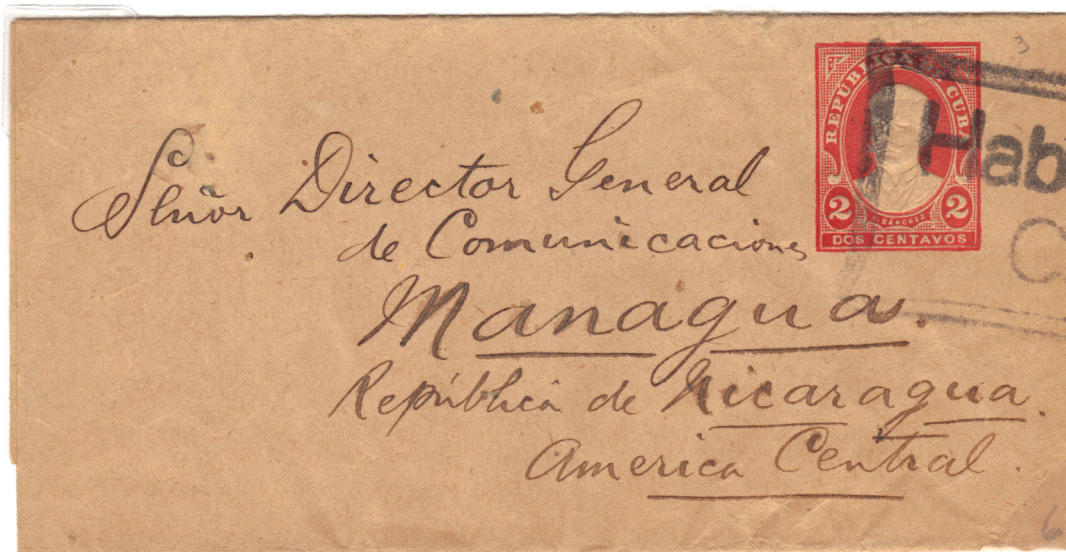 REPUBLICA DE CUBA
2 SANCHEZ 2
DOS CENTAVOS
Hab
C
3
Señor Director General
de Comunicaciones
Managua.
República de Nicaragua.
America Central.
6